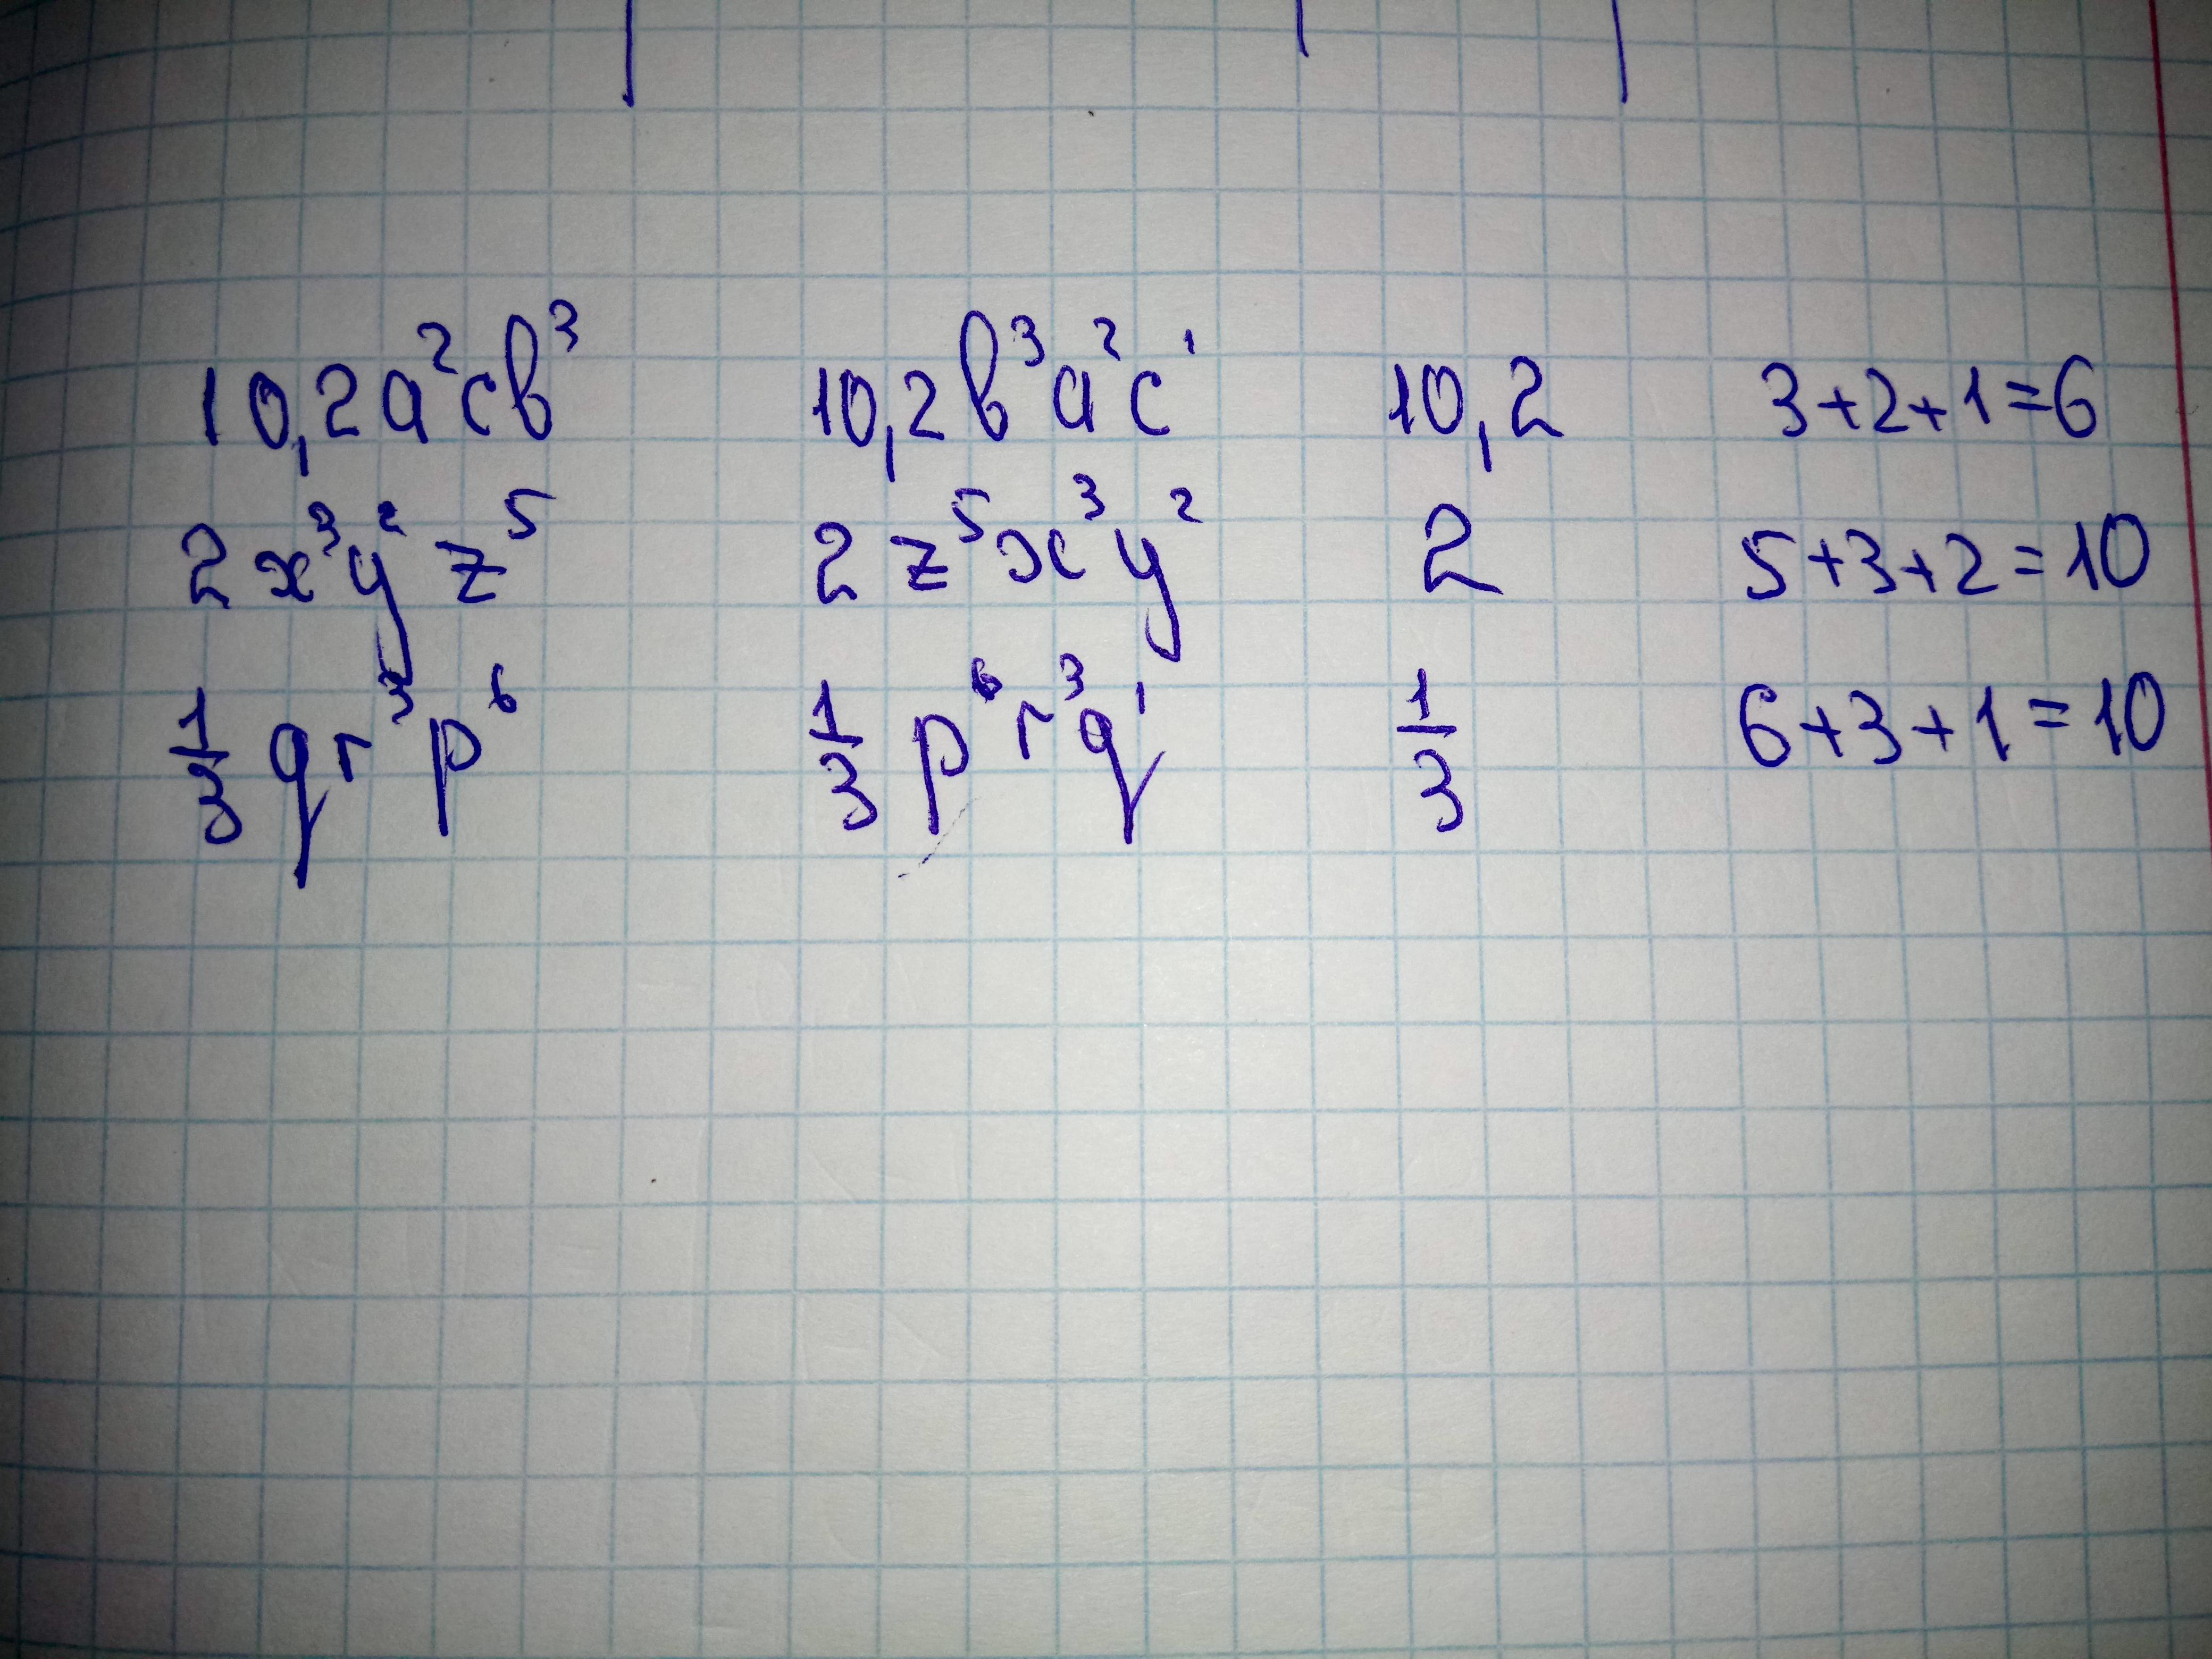 10,2a²cb³ 10,2b³a²c¹ 10,2 3+2+1=6
2x³y²z⁵ 2z⁵x³y² 2 5+3+2=10
1/3 qr³p⁶ 1/3 p⁶r³q¹ 1/3 6+3+1=10